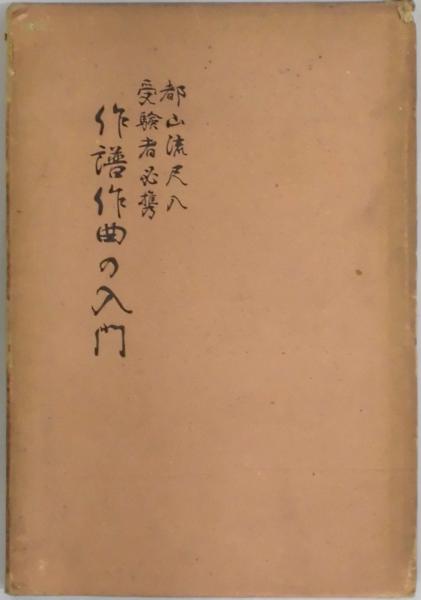 都山流尺八
受験者必携
作譜作曲の入門